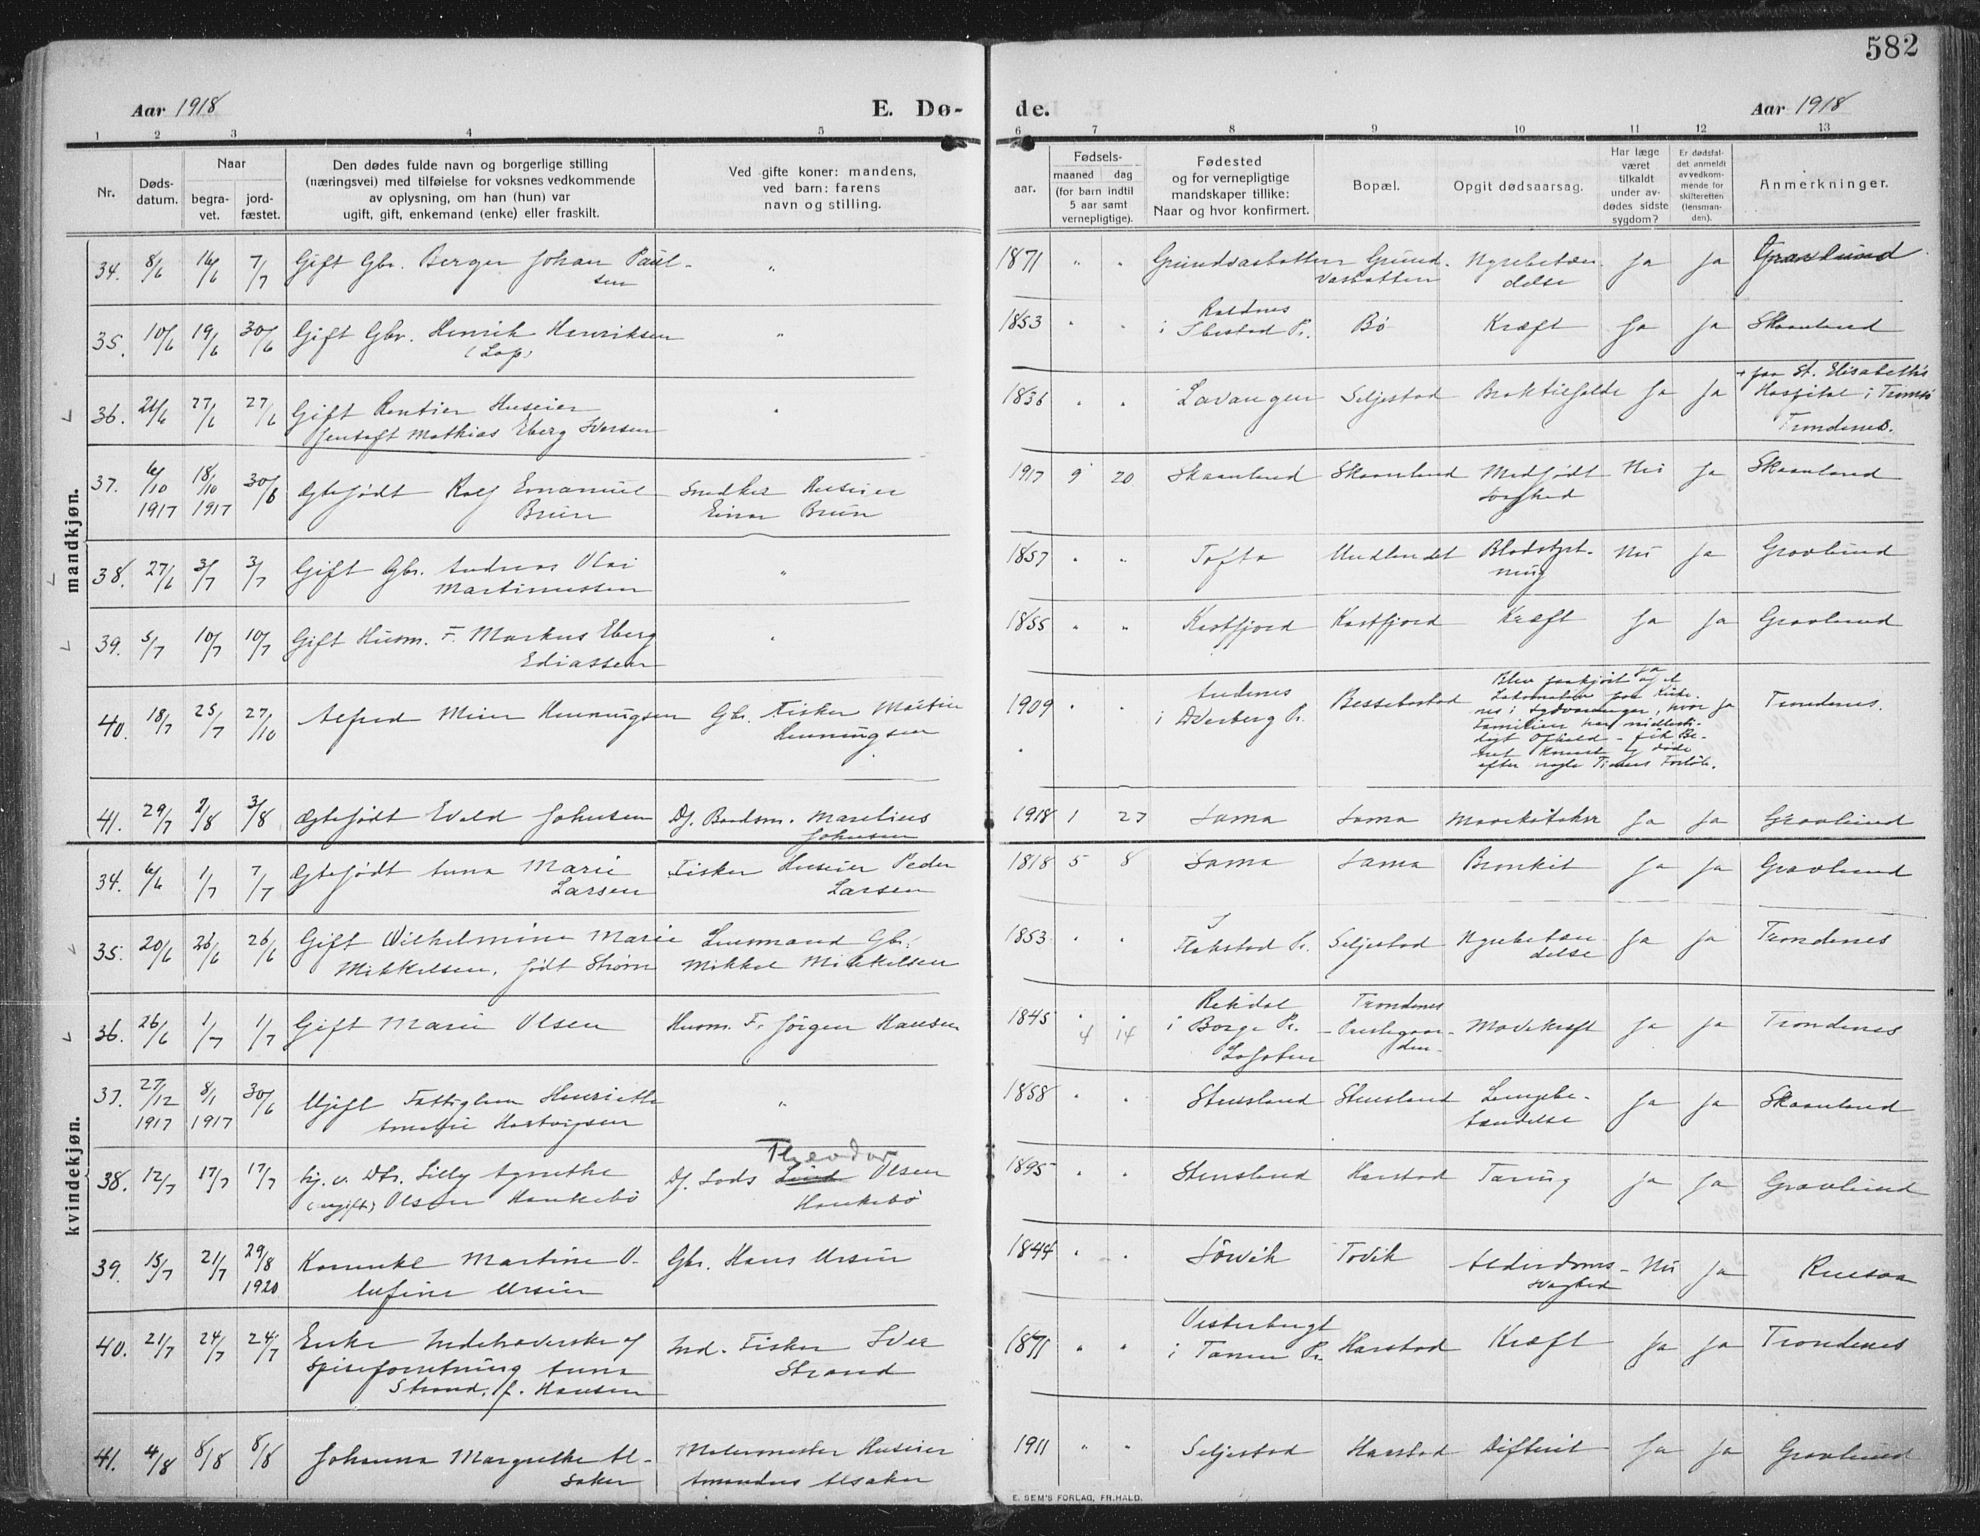 582
Aar 1918
E. Dø-
de.
Aar 1918
1 2 3 4 5 6 7 8 9 10 11 12 13
Nr.
Døds-
datum.
Naar
begra-
vet.
jord-
fæstet.
Den dødes fulde navn og borgerlige stilling
(næringsvei) med tilføielse for voksnes vedkommende
av oplysning, om han (hun) var
ugift, gift, enkemand (enke) eller fraskilt.
Ved gifte koner: mandens,
ved barn: farens
navn og stilling.
Fødsels-
aar.
maaned dag
(for barn indtil
5 aar samt
vernepligtige).
Fødested
og for vernepligtige
mandskaper tillike:
Naar og hvor konfirmert.
Bopæl.
Opgit dødsaarsag.
Har læge
været
tilkaldt
under av-
dødes sidste
sygdom?
Er dødsfal-
det anmeldt
av vedkom-
mende for
skifteretten
(lensman-
den).
Anmerkninger.
mandkjøn.
34. 8/6 16/6 7/7 Gift Gbr. Berger Johan Paul-
sen
" 1871 " " Nyrebetæn-
delse Ja Ja Gravlund
35. 10/6 19/6 30/6 Gift Gbr. Henrik Henriksen
(Lap)
" 1853 " " i Ibestad Pr. Bø Kræft Ja Ja Skaanland
36. 21/6 27/6 27/6 Gift Rentier Huseier
Jentoft Mathias Eberg Iversen
" 1836 " " Lavangen Seljestad Ja Ja + paa St. Elisabeths
Hospital i Tromsø
Trondenes.
37. 6/10 1917 18/10 1917 30/6 Ægtefødt Rolf Emanuel
Bruun
Snedker Huseier
Einar Bruun
1917 9 20 Skaanland Skaanland Medfødt
svaghed Nei Ja Skaanland
38. 27/6 3/7 3/7 Gift Gbr. Andreas Olai
Martinussen
" 1857 " " Tofta Blodstyrt-
ning Nei Ja Gravlund
39. 5/7 10/7 10/7 Gift Husm. F. Markus Eberg
Ediassen
" 1855 " " Kastfjord Kastfjord Kræft Ja Ja Gravlund
40. 18/7 25/7 27/10 Alfred Meier Henningsen Gbr. Fisker Martin
Henningsen
1909 " Andenes
i Dverberg Pr. Bessebostad Blev paakjørt af et
Lokomotiv paa Kirke-
nes i Sydvaranger, hvor
Familien har midlerti-
digt Ophold - fik Be-
net knust og døde
efter nogle Timers Forløb.
Ja Ja Trondenes.
41. 29/7 2/8 3/8 Ægtefødt Evald Johnsen Df. Baadsm. Marelius
Johnsen
1918 1 27 Sama Sama Mavekatahr Ja Ja Gravlund
kvindekjøn.
34. 6/6 1/7 7/7 Ægtefødt Anna Marie
Larsen
Fisker Huseier Peder
Larsen
1818 5 8 Sama Sama Bronkit Ja Ja Gravlund
35. 20/6 26/6 26/6 Gift Wilhelmine Marie
Mikkelsen, født Strøm
Gbr.
Mikkel Mikkelsen
1853 " " I
Flakstad Pr. Seljestad Nyrebetæn-
delse Ja Ja Trondenes
36. 26/6 1/7 1/7 Gift Marie Olsen Husm. F. Jørgen Hansen
1845 4 14 i Borge Pr.
Lofoten
Trondenes
- Prestegaar-
den - Mavekræft Ja Ja Trondenes
37. 27/12 1917 8/1 1917 30/6 Ugift Fattiglem Henriette
Amalie Hartvigsen
" 1858 " " Stensland Stensland Lungebe-
tændelse Ja Ja Skaanland
38. 12/7 17/7 17/7 Hj. v. Dtr. Lilly Agnethe
(ugift) Olsen Haukebø
Theodor
Df. Lods Olsen
Haukebø
1895 " " Stensland Harstad Tæring Ja Ja Gravlund
39. 15/7 21/7 29/8 1920 Martine O-
lufine Ursin
Gbr. Hans Ursin
1844 " " Sørvik Tovik Alderdoms-
svaghed Nei Ja
40. 21/7 24/7 24/7 Enke Indehaverske af
Spiseforretning Anna
Strand, f. Hansen
Ind. Fisker Iver
Strand
1871 " " i Tanen Pr. Harstad Kræft Ja Ja Trondenes
41. 4/8 8/8 8/8 Johanna Margrethe Al-
saker
Malermester Huseier
Amandus Alsaker
1911 " " Seljestad Harstad Difterit Ja Ja Gravlund
E. SEM'S FORLAG, FR.HALD.